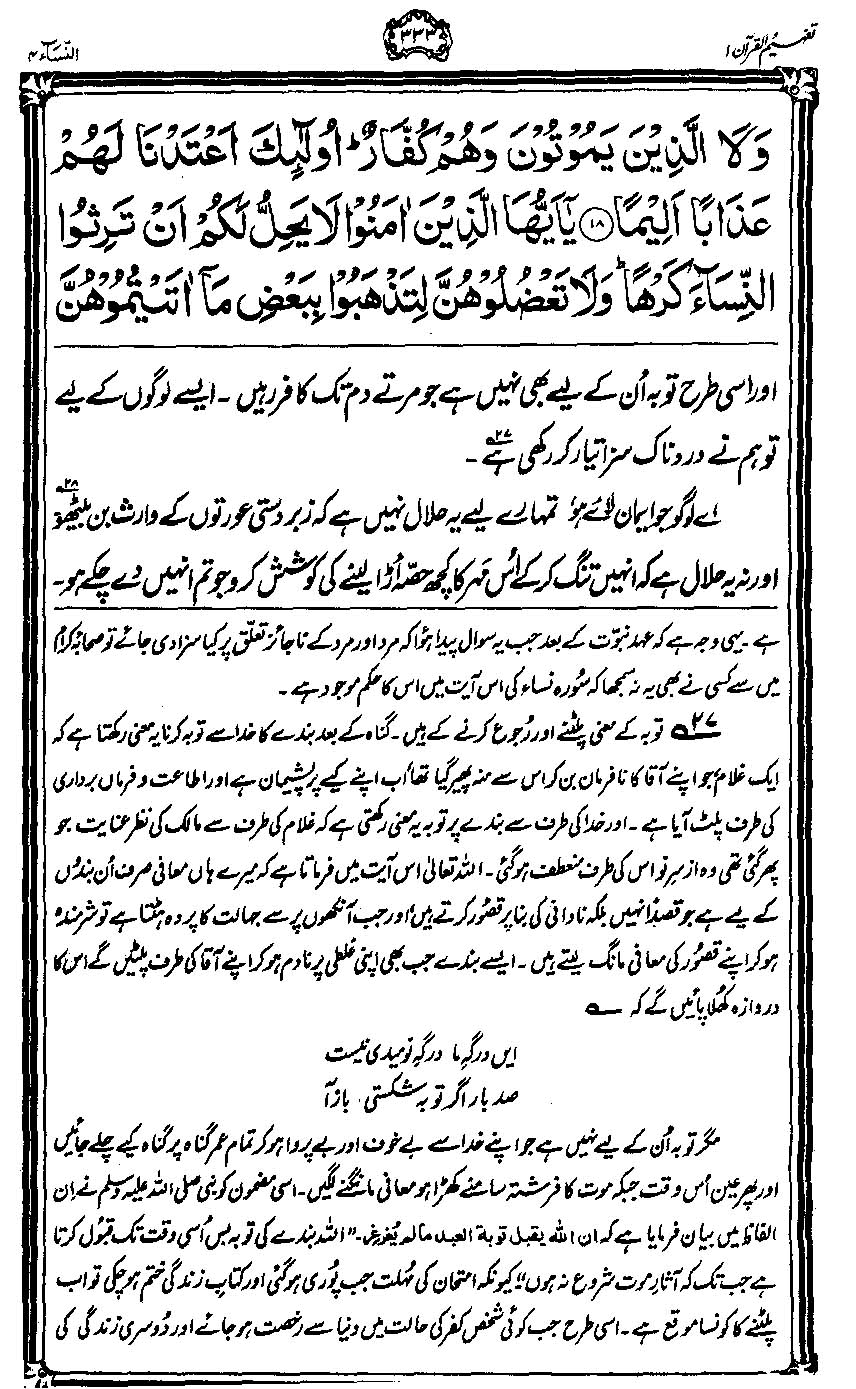 تفہیم القرآن ۱
۳۳۳
النّسَآء ۴
وَلَا الَّذِيْنَ يَمُوْتُوْنَ وَهُمْ كُفَّارٌ ؕ اُولٰٓئِكَ اَعْتَدْنَا لَهُمْ
عَذَابًا اَلِيْمًا ﴿۱۸﴾ يٰٓاَيُّهَا الَّذِيْنَ اٰمَنُوْا لَا يَحِلُّ لَكُمْ اَنْ تَرِثُوا
النِّسَآءَ كَرْهًا ؕ وَلَا تَعْضُلُوْهُنَّ لِتَذْهَبُوْا بِبَعْضِ مَآ اٰتَيْتُمُوْهُنَّ
اور اسی طرح توبہ اُن کے لیے بھی نہیں ہے جو مرتے دم تک کافر رہیں۔ ایسے لوگوں کے لیے
تو ہم نے دردناک سزا تیار کر رکھی ہے ۲۷؎۔
اے لوگو جو ایمان لائے ہو، تمہارے لیے یہ حلال نہیں ہے کہ زبردستی عورتوں کے وارث بن بیٹھو ۲۸؎
اور نہ یہ حلال ہے کہ انہیں تنگ کر کے اُس مَہر کا کچھ حصّہ اُڑا لینے کی کوشش کرو جو تم انہیں دے چکے ہو۔
ہے۔ یہی وجہ ہے کہ عہد نبوّت کے بعد جب یہ سوال پیدا ہوا کہ مرد اور مرد کے ناجائز تعلّق پر کیا سزا دی جائے تو صحابۂ کرامؓ
میں سے کسی نے بھی یہ نہ سمجھا کہ سُورہ نساء کی اس آیت میں اس کا حکم موجود ہے۔
۲۷؎ توبہ کے معنی پلٹنے اور رُجوع کرنے کے ہیں۔ گناہ کے بعد بندے کا خدا سے توبہ کرنا یہ معنی رکھتا ہے کہ
ایک غلام، جو اپنے آقا کا نافرمان بن کر اس سے منہ پھیر گیا تھا، اب اپنے کیے پر پشیمان ہے اور اطاعت و فرماں برداری
کی طرف پلٹ آیا ہے۔ اور خدا کی طرف سے بندے پر توبہ یہ معنی رکھتی ہے کہ غلام کی طرف سے مالک کی نظر عنایت جو
پھر گئی تھی وہ از سرِ نو اس کی طرف منعطف ہو گئی۔ اللہ تعالیٰ اس آیت میں فرماتا ہے کہ میرے ہاں معافی صرف اُن بندوں
کے لیے ہے جو قصداً نہیں بلکہ نادانی کی بنا پر قصُور کرتے ہیں، اور جب آنکھوں پر سے جہالت کا پردہ ہٹتا ہے تو شرمندہ
ہو کر اپنے قصُور کی معافی مانگ لیتے ہیں۔ ایسے بندے جب بھی اپنی غلطی پر نادم ہو کر اپنے آقا کی طرف پلٹیں گے اس کا
دروازہ کُھلا پائیں گے کہ ؎
ایں درگہِ ما درگہِ نومیدی نیست
صد بار اگر توبہ شکستی، باز آ
مگر توبہ اُن کے لیے نہیں ہے جو اپنے خدا سے بے خوف اور بے پروا ہو کر تمام عمر گناہ پر گناہ کیے چلے جائیں
اور پھر عین اُس وقت جبکہ موت کا فرشتہ سامنے کھڑا ہو معافی مانگنے لگیں۔ اسی مضمون کو نبی صلی اللہ علیہ وسلم نے اِن
الفاظ میں بیان فرمایا ہے کہ ان اللہ یقبل توبة العبد مالم یُغرغر۔ ”اللہ بندے کی توبہ بس اُسی وقت تک قبول کرتا
ہے جب تک کہ آثارِ موت شروع نہ ہوں“۔ کیونکہ امتحان کی مُہلت جب پُوری ہو گئی اور کتابِ زندگی ختم ہو چکی تو اب
پلٹنے کا کونسا موقع ہے۔ اسی طرح جب کوئی شخص کفر کی حالت میں دنیا سے رخصت ہو جائے اور دُوسری زندگی کی